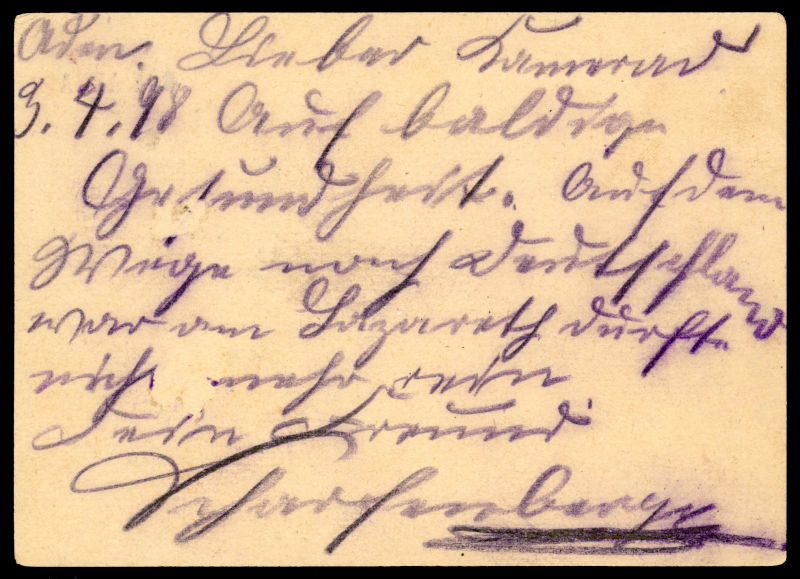 Aden. Lieber Kamerad
3.4.98 Auf baldige
Gesundheit. Auf dem
Wege nach Deutschland
war am Lazareth durfte
nicht mehr rein
Dein Freund
Scharfenberger